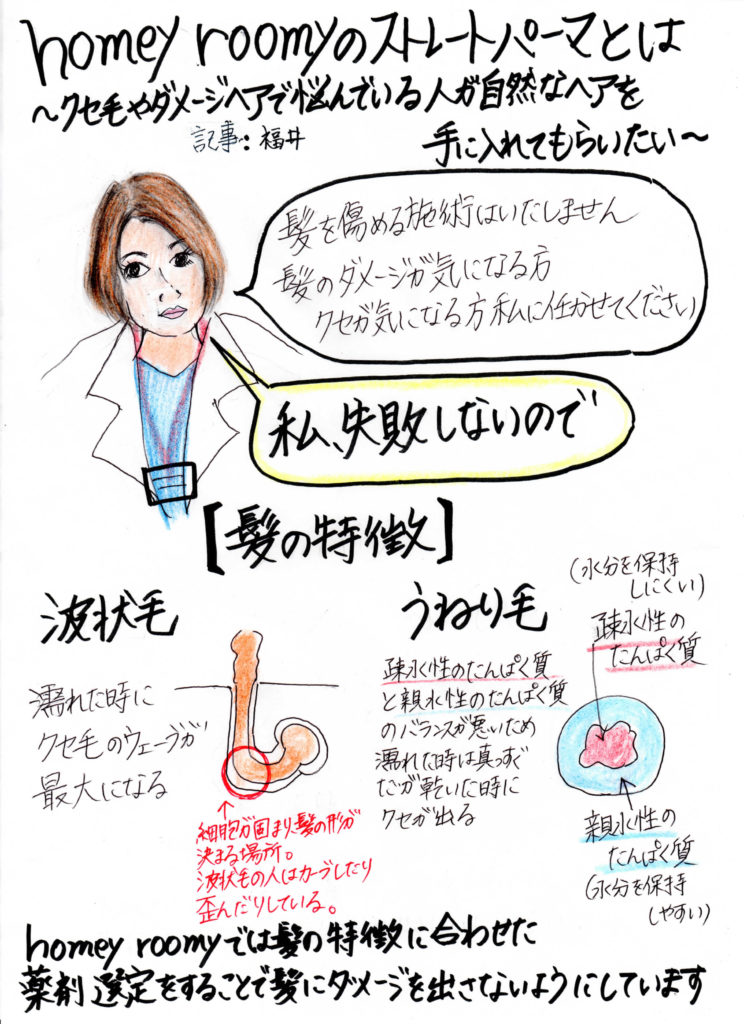 homey roomyのストレートパーマとは
～クセ毛やダメージヘアで悩んでいる人が自然なヘアを
手に入れてもらいたい～
記事：福井
髪を傷める施術はいたしません
髪のダメージが気になる方
クセが気になる方私に任かせてください
私、失敗しないので
【髪の特徴】
波状毛
濡れた時に
クセ毛のウェーブが
最大になる
↑
細胞が固まり、髪の形が
決まる場所。
波状毛の人はカーブしたり
歪んだりしている。
うねり毛
疎水性のたんぱく質
と親水性のたんぱく質
のバランスが悪いため
濡れた時は真っすぐ
だが乾いた時に
クセが出る
(水分を保持
しにくい)
疎水性の
たんぱく質
親水性の
たんぱく質
(水分を保持
しやすい)
homey roomyでは髪の特徴に合わせた
薬剤選定をすることで髪にダメージを出さないようにしています